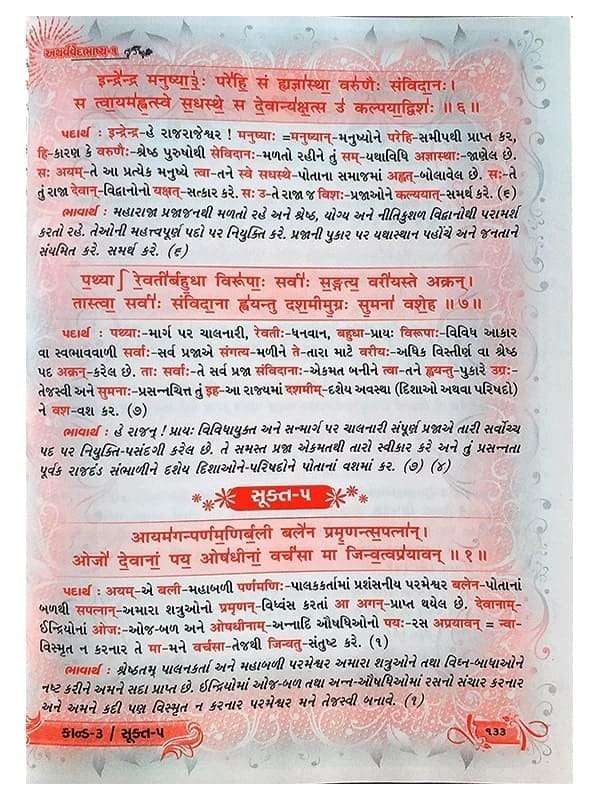 અથર્વવેદભાષ્ય-૧
इन्द्रे॑न्द्र मनुष्या॒३॒ः परे॑हि सं ह्यज्ञा॑स्था॒ वरु॑णैः संविदा॒नः।
स त्वा॒यम॑ह्व॒त्स्वे स॒धस्थे॒ स दे॒वान्य॑क्ष॒त्स उ॑ कल्पया॒द्विशः॑ ॥ ६ ॥
પદાર્થ : ઇન્દ્રેન્દ્ર-હે રાજરાજેશ્વર ! મનુષ્યાઃ =મનુષ્યાન્-મનુષ્યોને પરેહિ-સમીપથી પ્રાપ્ત કર,
હિ-કારણ કે વરુણૈઃ-શ્રેષ્ઠ પુરુષોથી સંવિદાનઃ-મળતો રહીને તું સમ્-યથાવિધિ અજ્ઞાસ્થાઃ-જાણેલ છે.
સઃ અયમ્-તે આ પ્રત્યેક મનુષ્યે ત્વા-તને સ્વે સધસ્થે-પોતાના સમાજમાં અહ્વત્-બોલાવેલ છે. સઃ-તે
તું રાજા દેવાન્-વિદ્વાનોનો યક્ષત્-સત્કાર કરે. સઃ ઉ-તે રાજા જ વિશઃ-પ્રજાઓને કલ્યયાત્-સમર્થ કરે. (૬)
ભાવાર્થ : મહારાજા પ્રજાજનથી મળતો રહે અને શ્રેષ્ઠ, યોગ્ય અને નીતિકુશળ વિદ્વાનોથી પરામર્શ
કરતો રહે. તેઓની મહત્ત્વપૂર્ણ પદો પર નિયુક્તિ કરે. પ્રજાની પુકાર પર યથાસ્થાન પહોંચે અને જનતાને
સંયમિત કરે. સમર્થ કરે. (૬)
प॒थ्या॑ रे॒वती॑र्बहु॒धा विरू॑पाः॒ सर्वाः॑ स॒ङ्गत्य॒ वरी॑यस्ते अक्रन्।
तास्त्वा॒ सर्वाः॑ संविदा॒ना ह्व॑यन्तु दश॒मीमु॒ग्रः सु॒मना॑ वशे॒ह ॥ ७ ॥
પદાર્થ : પથ્યાઃ-માર્ગ પર ચાલનારી, રેવતીઃ-ધનવાન, બહુધા-પ્રાયઃ વિરૂપાઃ-વિવિધ આકાર
વા સ્વભાવવાળી સર્વાઃ-સર્વ પ્રજાએ સંગત્ય-મળીને તે-તારા માટે વરીયઃ-અધિક વિસ્તીર્ણ વા શ્રેષ્ઠ
પદ અક્રન્-કરેલ છે. તાઃ સર્વાઃ-તે સર્વ પ્રજા સંવિદાનાઃ-એકમત બનીને ત્વા-તને હ્વયન્તુ-પુકારે ઉગ્રઃ-
તેજસ્વી અને સુમનાઃ-પ્રસન્નચિત્ત તું ઇહ-આ રાજ્યમાં દશમીમ્-દશેય અવસ્થા (દિશાઓ અથવા પરિષદો)
ને વશ-વશ કર. (૭)
ભાવાર્થ : હે રાજન્ ! પ્રાયઃ વિવિધાયુક્ત અને સન્માર્ગ પર ચાલનારી સંપૂર્ણ પ્રજાએ તારી સર્વોચ્ચ
પદ પર નિયુક્તિ-પસંદગી કરેલ છે. તે સમસ્ત પ્રજા એકમતથી તારો સ્વીકાર કરે અને તું પ્રસન્નતા
પૂર્વક રાજદંડ સંભાળીને દશેય દિશાઓને-પરિષદોને પોતાનાં વશમાં કર. (૭) (૪)
સૂક્ત-૫
आयम॑गन्पर्णम॒णिर्ब॒ली बले॑न प्रमृ॒णन्त्स॒पत्ना॑न्।
ओजो॑ दे॒वानां॒ पय॒ ओष॑धीनां॒ वर्च॑सा मा जिन्व॒त्वप्र॑यावन् ॥ १ ॥
પદાર્થ : અયમ્-એ બલી-મહાબળી પર્ણમણિઃ-પાલકકર્તામાં પ્રશંસનીય પરમેશ્વર બલેન-પોતાનાં
બળથી સપત્નાન્-અમારા શત્રુઓનો પ્રમૃણન્-વિધ્વંસ કરતાં આ અગન્-પ્રાપ્ત થયેલ છે. દેવાનામ્-
ઈન્દ્રિયોનાં ઓજઃ-ઓજ-બળ અને ઓષધીનામ્-અન્નાદિ ઔષધિઓનો પયઃ-રસ અપ્રયાવન્ = ન્વા-
વિસ્મૃત ન કરનાર તે મા-મને વર્ચસા-તેજથી જિન્વતુ-સંતુષ્ટ કરે. (૧)
ભાવાર્થ : શ્રેષ્ઠતમ્ પાલનકર્તા અને મહાબળી પરમેશ્વર અમારા શત્રુઓને તથા વિઘ્ન-બાધાઓને
નષ્ટ કરીને અમને સદા પ્રાપ્ત છે. ઈન્દ્રિયોમાં ઓજ-બળ તથા અન્ન-ઔષધિઓમાં રસનો સંચાર કરનાર
અને અમને કદી પણ વિસ્મૃત ન કરનાર પરમેશ્વર મને તેજસ્વી બનાવે. (૧)
કાન્ડ-૩ / સૂક્ત-૫
૧૩૩